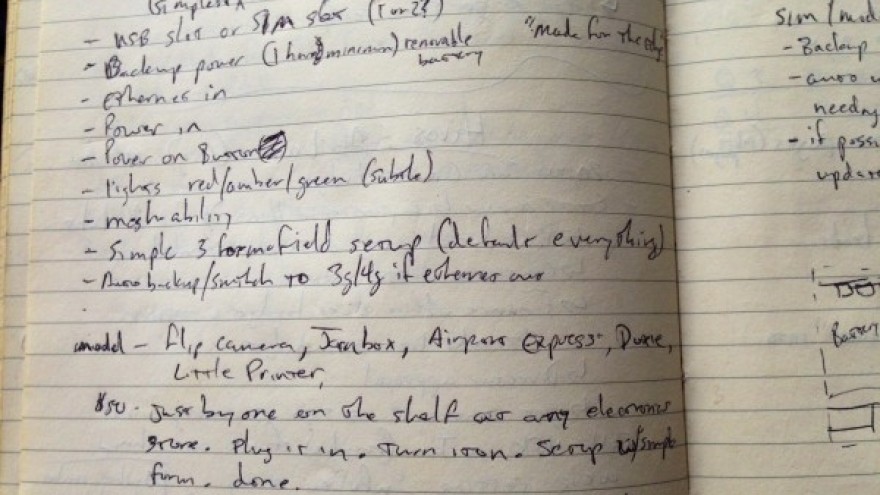 (simplest
- USB slot or SIM slot (1 or 2?)
"Made for the edge"
- Backup power (1 hour minimum) removable
battery
- ethernet in
- Power in
- Power on Button
- lights red/amber/green (subtle)
- meshability
- Simple 3 form field setup (default everything)
- Auto backup/switch to 3g/4g if ethernet out
model - flip camera, Jambox, Airport Express, Doxie,
Little Printer,
$50. Just by one on the shelf at any electronics
store. Plug it in. Turn it on. Setup w/ simple
form. done.
SIM/mod
- Backup
- auto
needing
- if possi
update
Battery